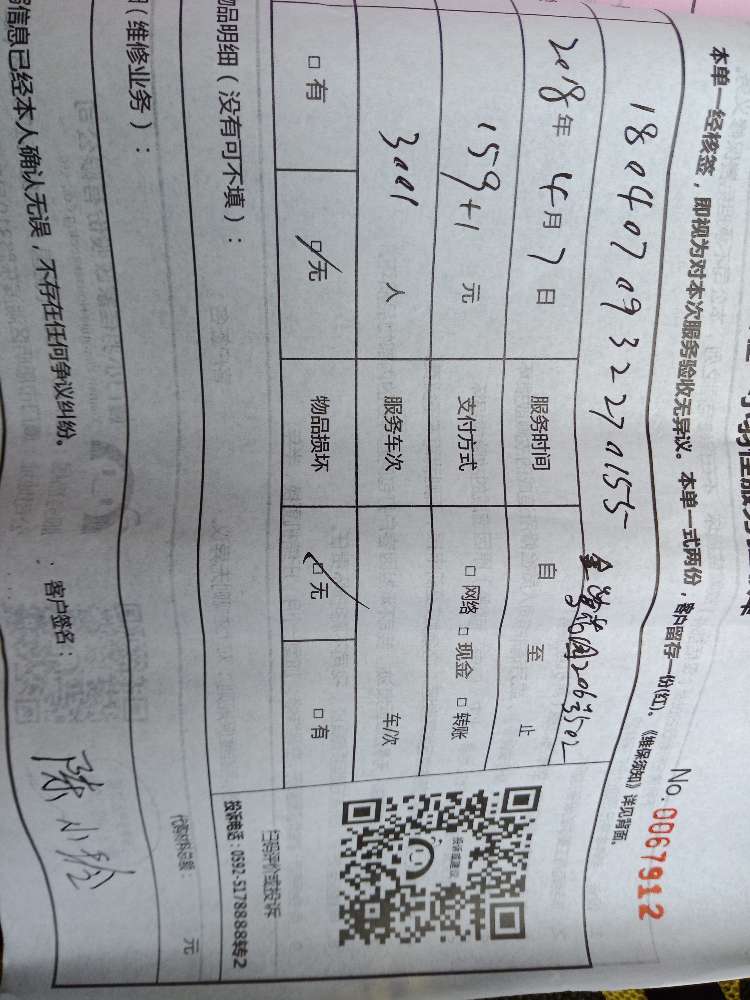 No.0067912
本单一经核签，即视为对本次服务验收无异议。本单一式两份，客户留存一份(红)。《维保须知》详见背面。
18040709322270155
2018年4月7日 服务时间 自 至 止
159+1 元 支付方式 □ 网络 □ 现金 □ 转账
3001 人 服务车次 车/次
□ 有 □ 无 物品损坏 □ 无 □ 有
投诉或建议
扫码评价或投诉
投诉电话：0592-5178888转2
物品明细（没有可不填）：
代购材料总额： 元
（维修业务）：
信息已经本人确认无误，不存在任何争议纠纷。
客户签名：